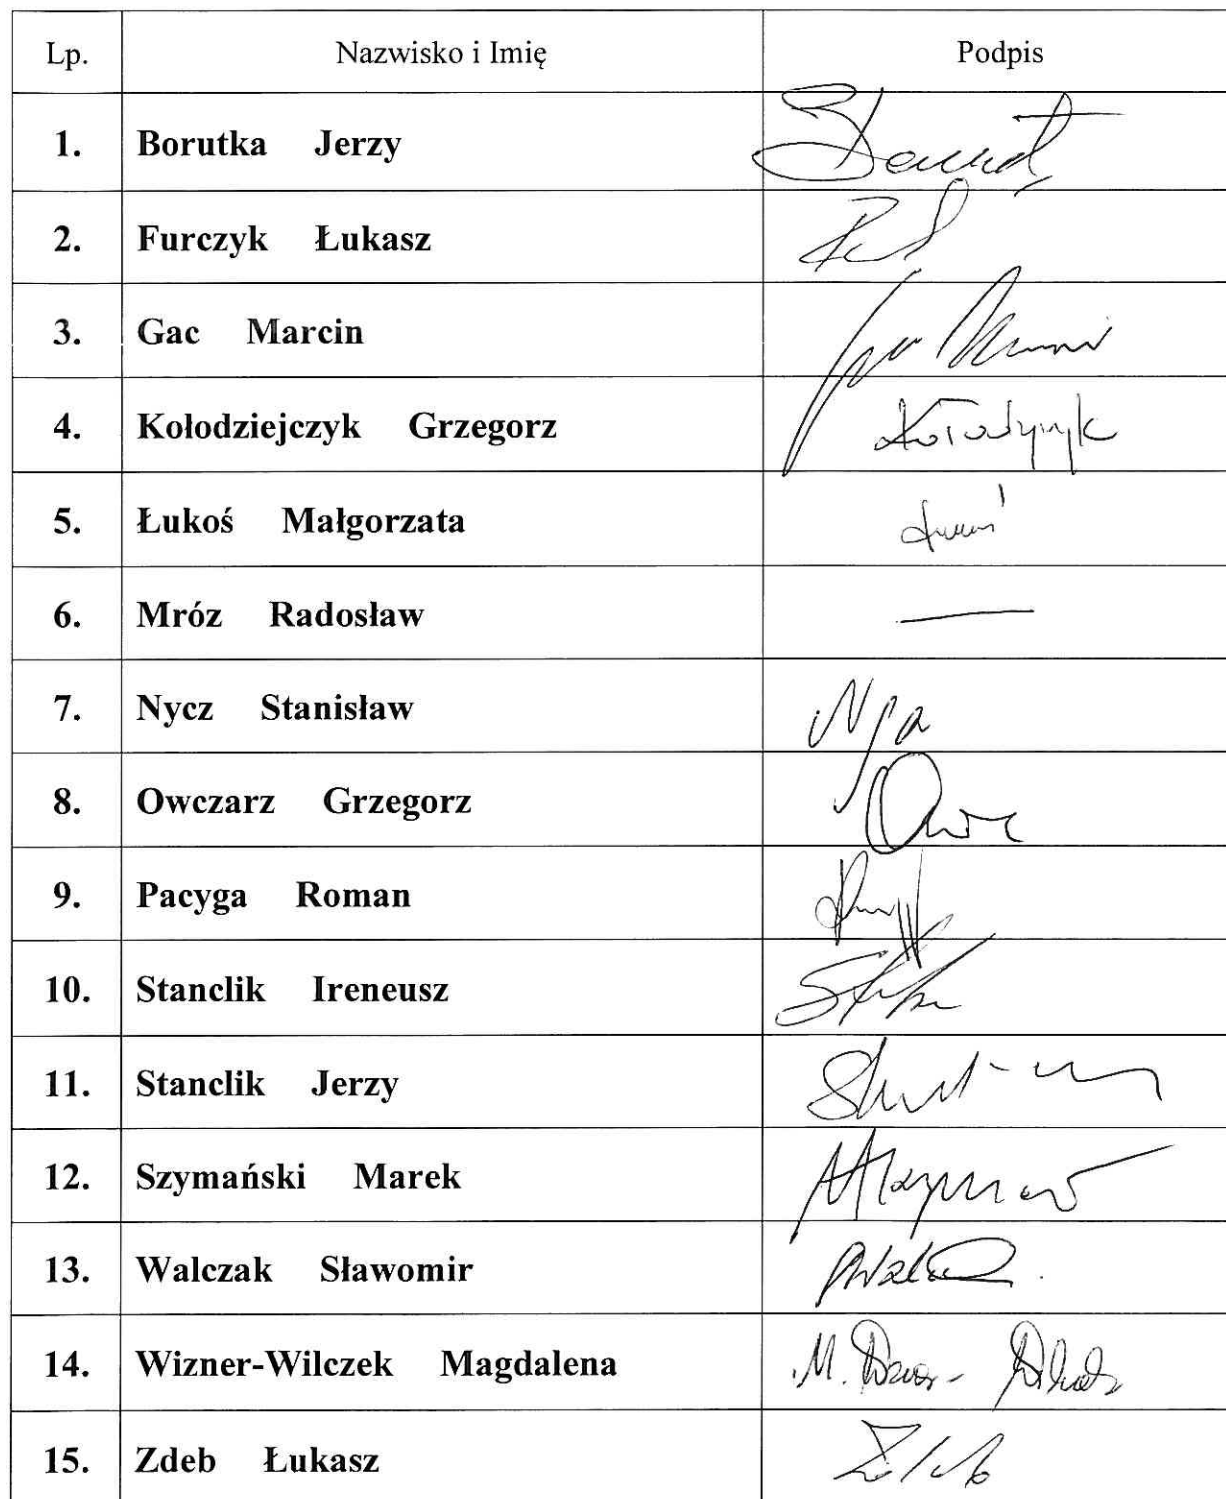 Lp. Nazwisko i Imię Podpis
1. Borutka Jerzy
2. Furczyk Łukasz
3. Gac Marcin
4. Kołodziejczyk Grzegorz
5. Łukoś Małgorzata
6. Mróz Radosław —
7. Nycz Stanisław
8. Owczarz Grzegorz
9. Pacyga Roman
10. Stanclik Ireneusz
11. Stanclik Jerzy
12. Szymański Marek
13. Walczak Sławomir
14. Wizner-Wilczek Magdalena
15. Zdeb Łukasz